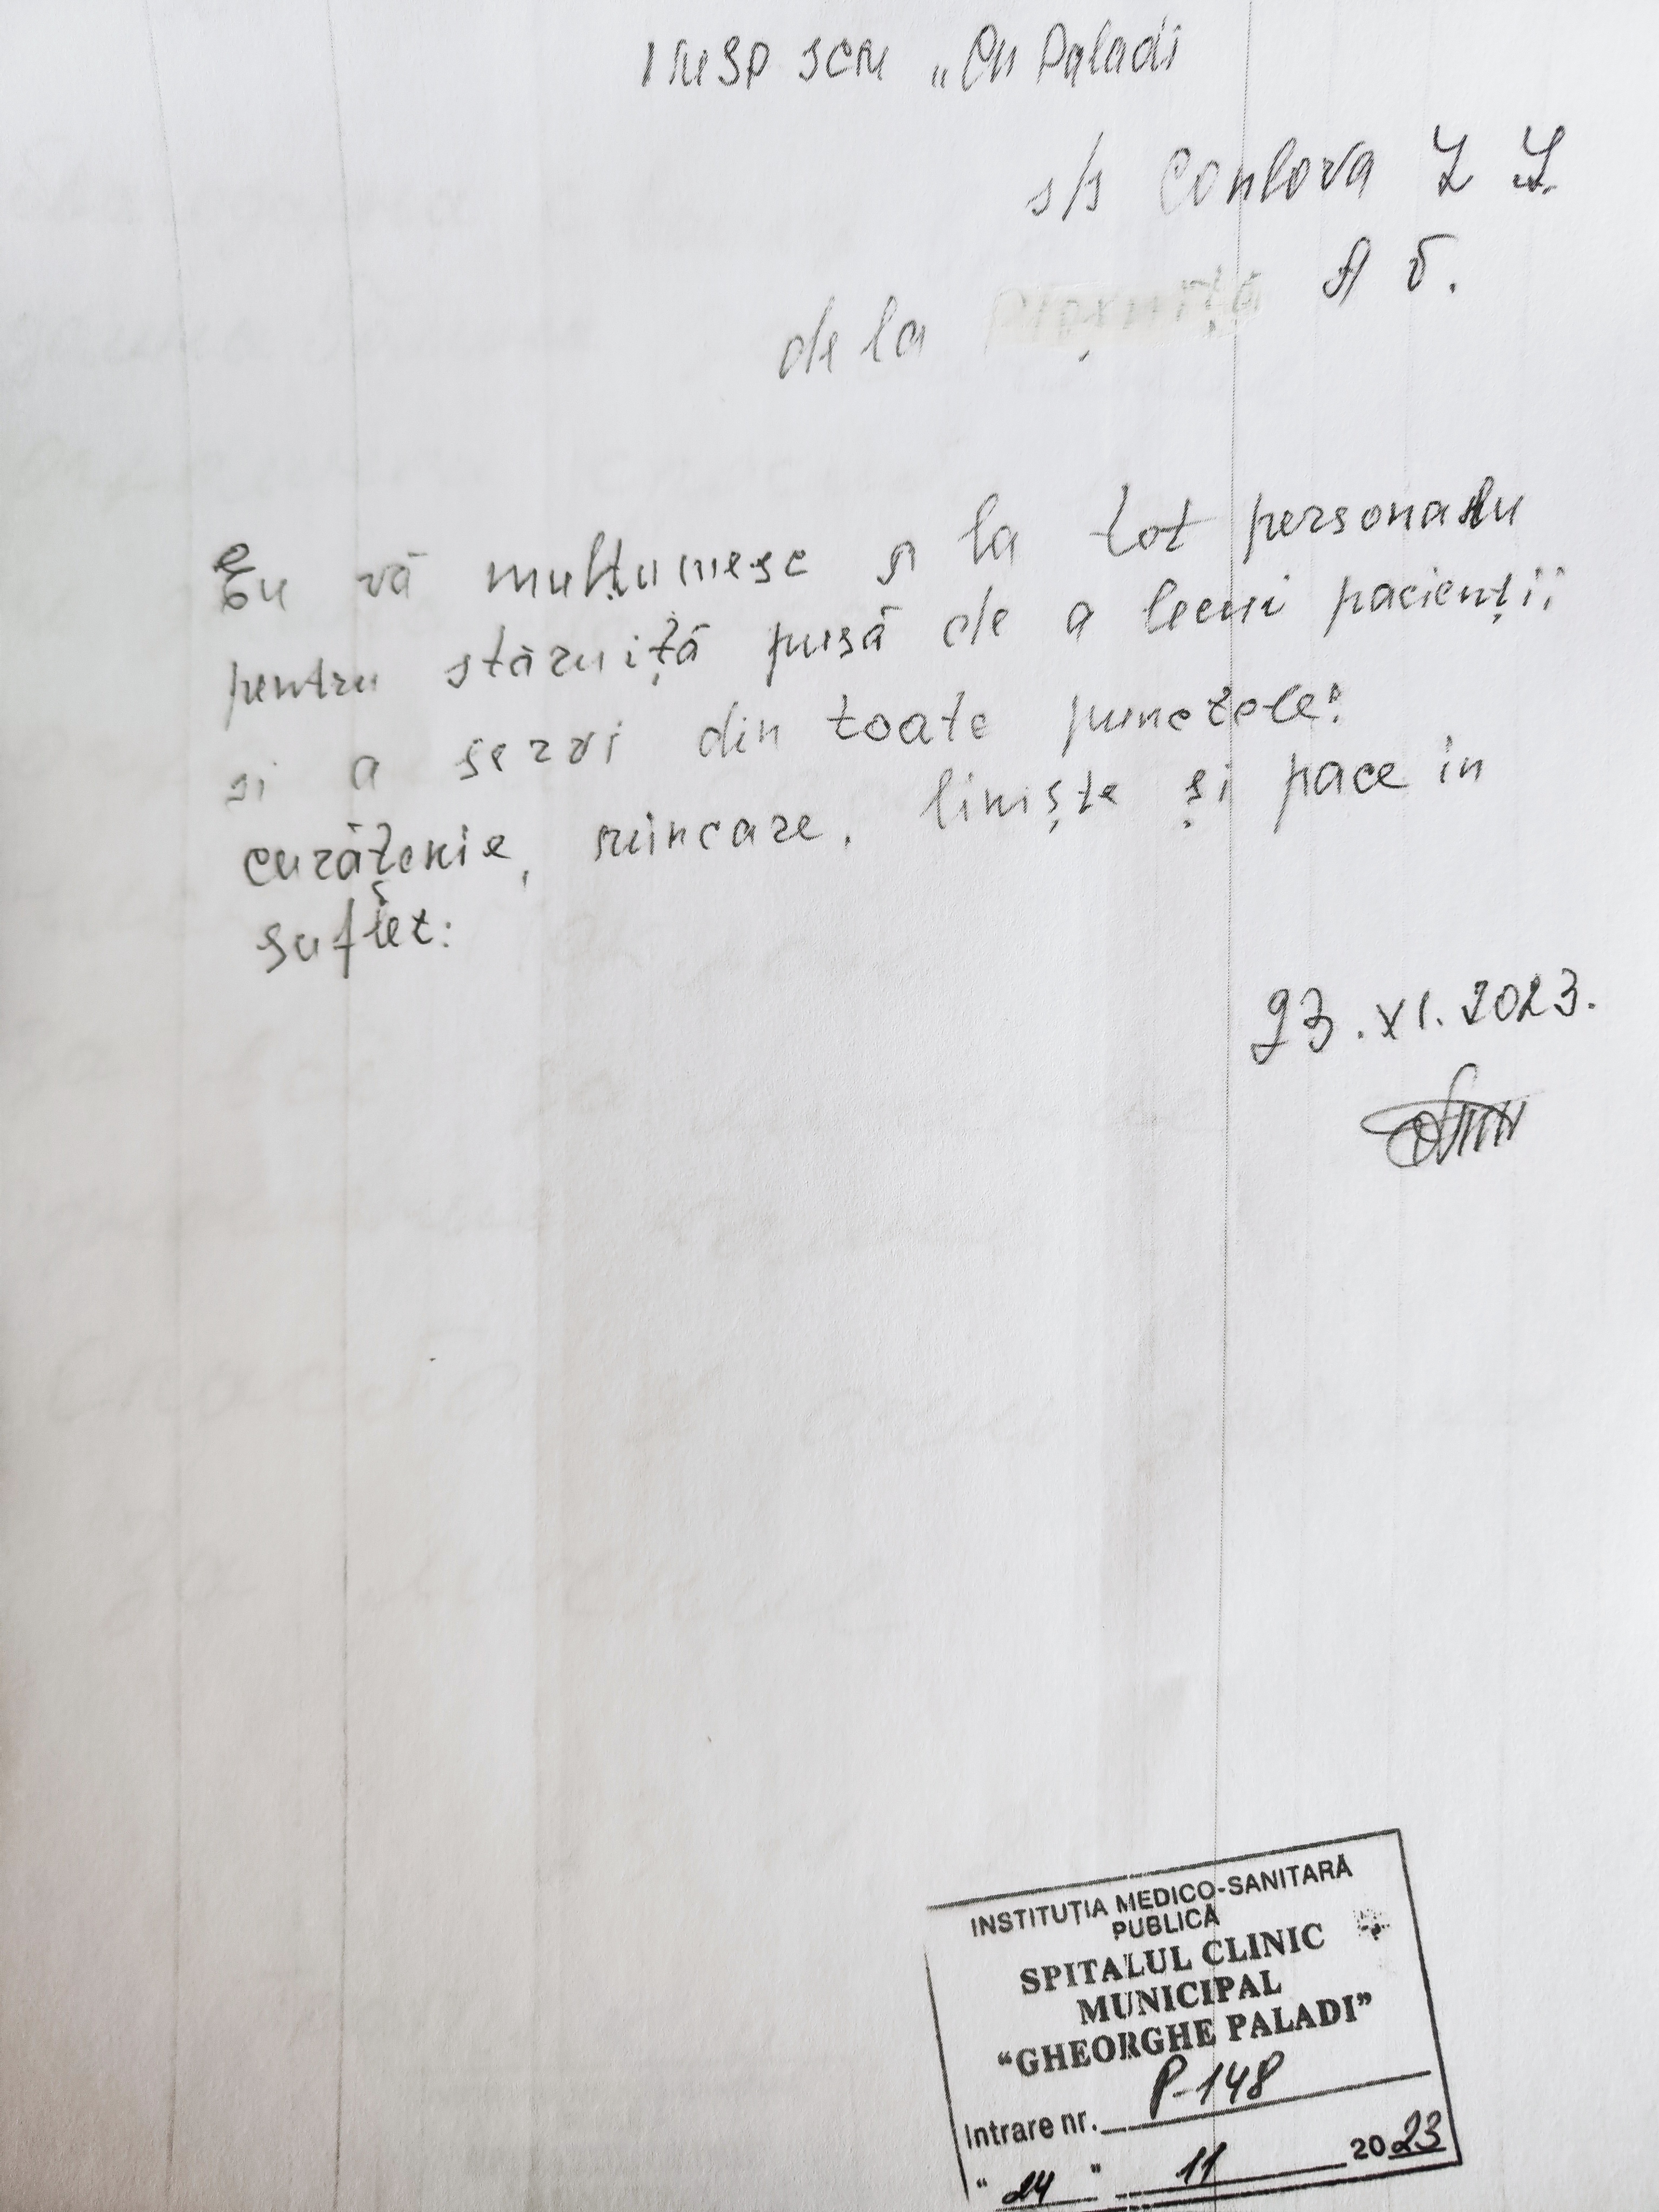 IMSP SCM „Gh Paladi
s/s Conlova
de la
Eu vă mulțumesc și la tot personalu
pentru stăruiță pusă de a lecui pacienții
si a servi din toate punctele:
curățenie, mincare, liniște și pace in
suflet:
23.XI.2023.
INSTITUȚIA MEDICO-SANITARĂ
PUBLICĂ
SPITALUL CLINIC
MUNICIPAL
“GHEORGHE PALADI”
Intrare nr. P-148
“24” 11 2023